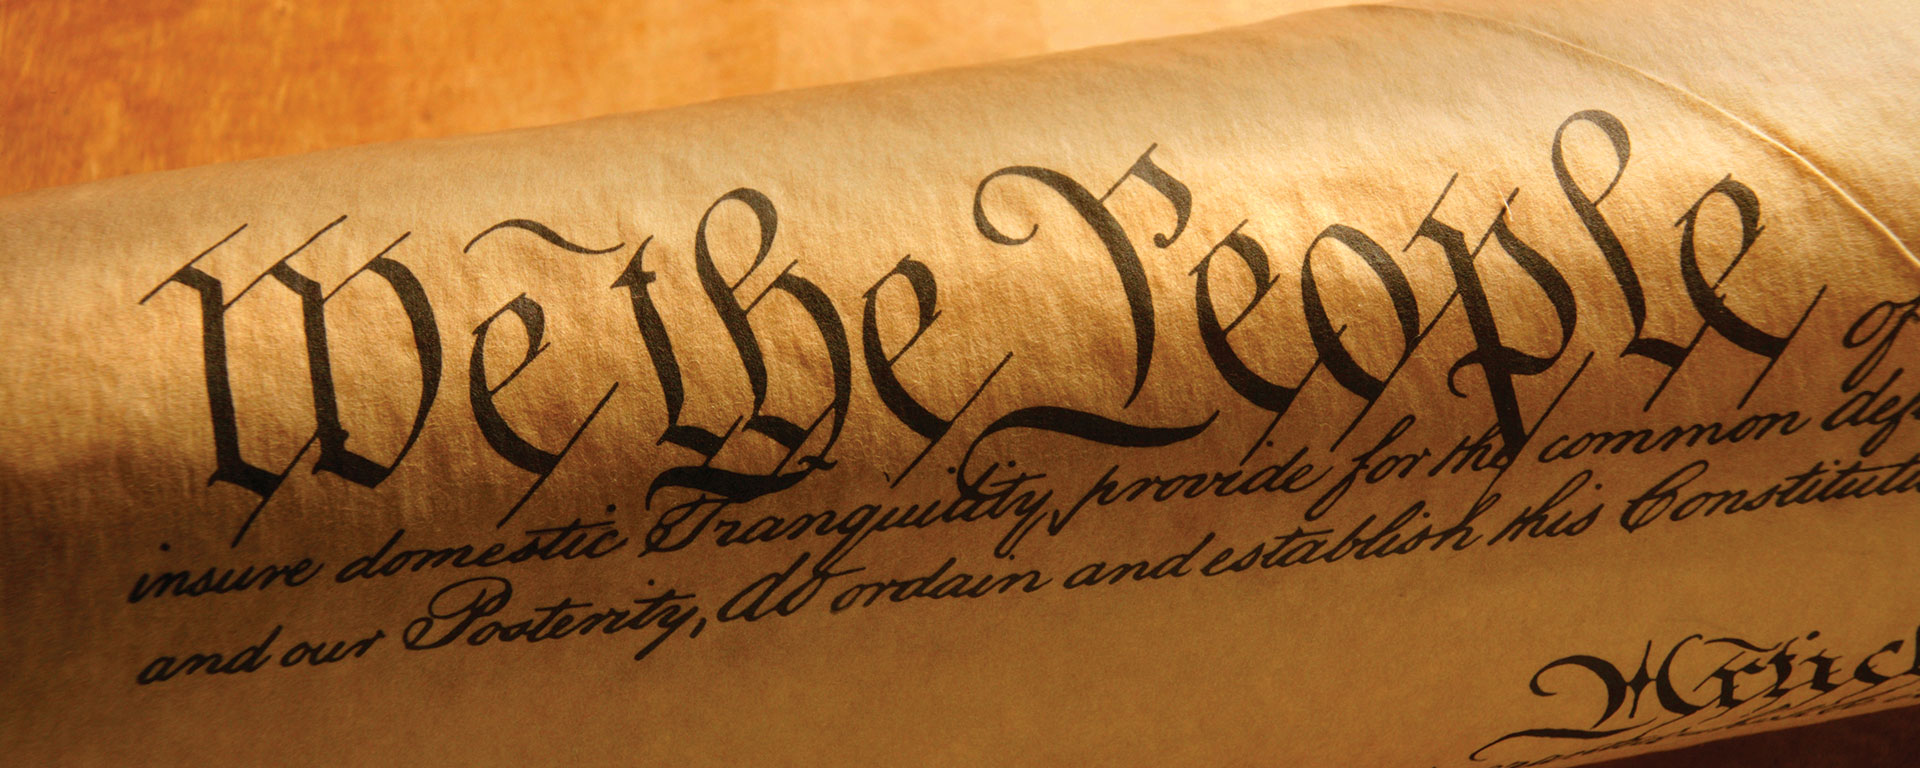 We the People of
insure domestic Tranquility, provide for the common def
and our Posterity, do ordain and establish this Constituti
Artic